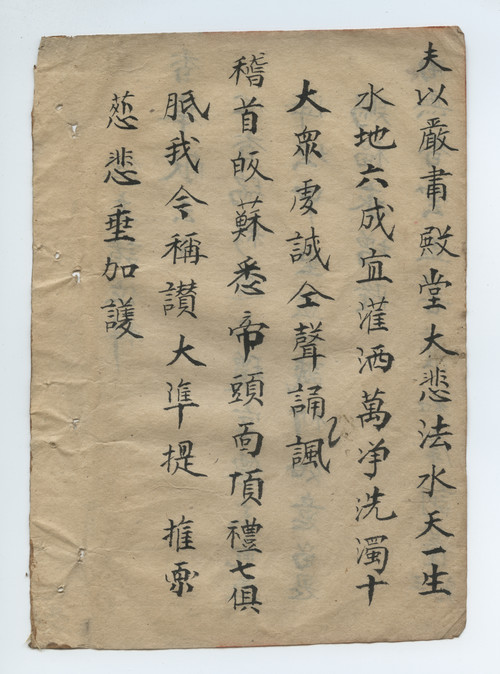 夫以嚴肅殿堂大悲法水天一生
水地六成宜灌洒萬净洗濁十
大衆虔誠仝聲誦諷
稽首皈蘇悉帝頭面頂禮七俱
胝我今稱讃大準提 推
慈悲垂加護